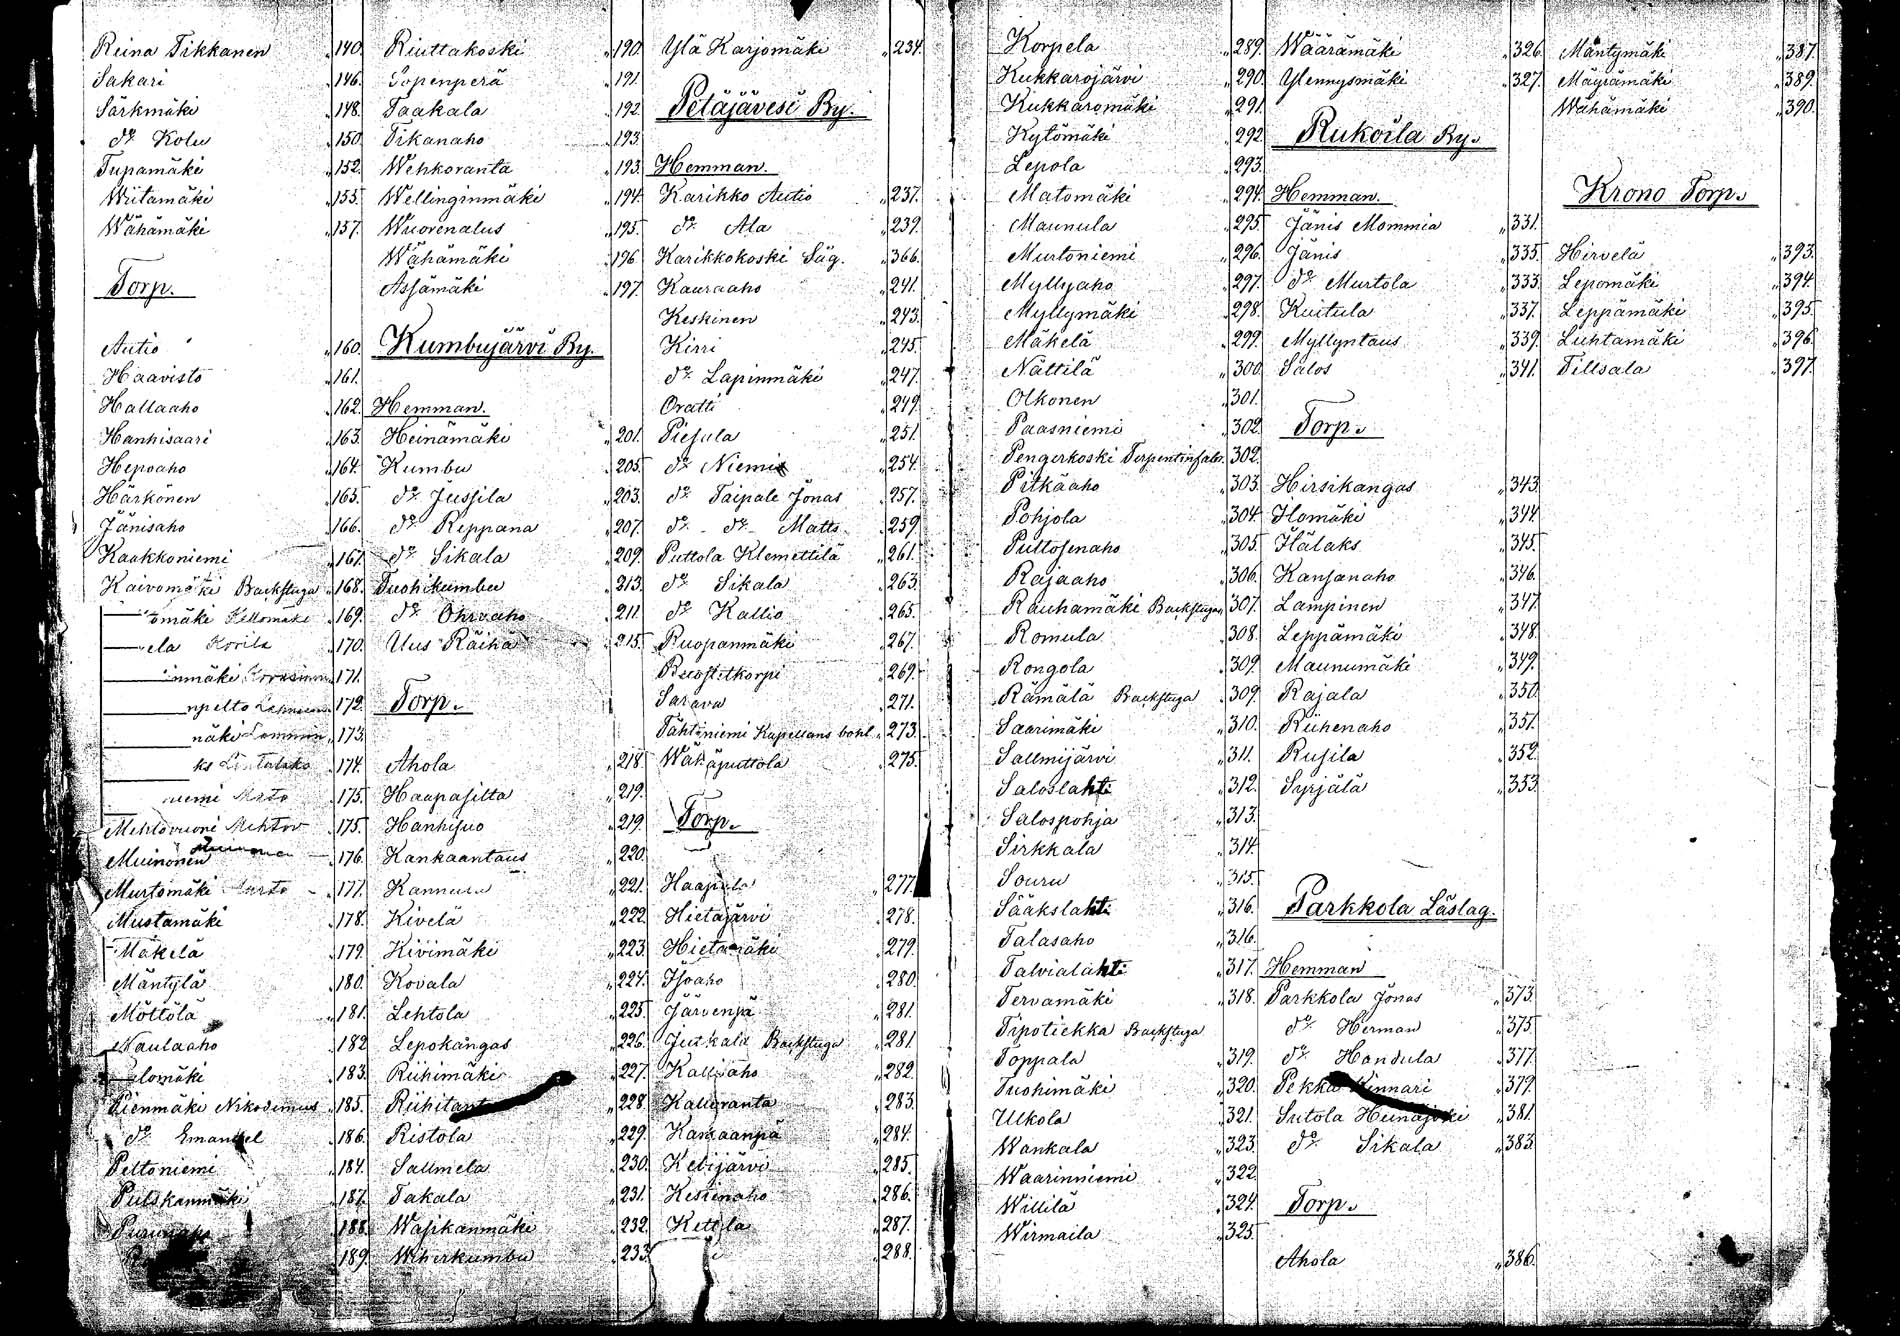 Reina Tikkanen „ 140.
Sakari „ 146.
Särkmäki „ 148.
d:o Kolu „ 150.
Tupamäki „ 152.
Wiitamäki „ 155.
Wähämäki „ 157.
Torp.
Autio „ 160.
Haavisto „ 161.
Hallaaho „ 162.
Hanhisaari „ 163.
Hepoaho „ 164.
Härkönen „ 165.
Jänisaho „ 166.
Kaakkoniemi „ 167.
Kaivomäki Backstuga „ 168.
omäki Kellomäki „ 169.
ela „ 170.
inmäki „ 171.
npelto „ 172.
näki „ 173.
ks „ 174.
niemi „ 175.
Mehtovuori „ 175.
Muinonen Muinonen 176.
Murtomäki Murto 177.
Mustamäki „ 178.
Mäkelä „ 179.
Mäntylä „ 180.
Möttölä „ 181.
Naulaaho „ 182
lomäki „ 183.
Pienmäki Nikodemus „ 185.
d:o Emanuel „ 186.
Peltoniemi „ 184.
187.
188.
189.
Riuttakoski „ 190.
Sopenperä „ 191.
Taakala „ 192.
Tikanaho „ 193.
Wehkoranta „ 193.
Wellinginmäki „ 194.
Wuorenalus „ 195.
Wähämäki „ 196
Assämäki „ 197.
Kumbujärvi By.
Hemman.
Heinämäki „ 201.
Kumbu „ 205.
d:o Jussila „ 203.
d:o Reppana „ 207.
d:o Sikala „ 209.
Tuohikumbu „ 213.
d:o Ohraaho „ 211.
Uus Räihä „ 215.
Torp.
Ahola „ 218.
Haapasilta „ 219.
Hanhisuo „ 219.
Kankaantaus „ 220.
Kannura „ 221.
Kivelä „ 222.
Kivimäki „ 223.
Kovala „ 224.
Lehtola „ 225.
Lepokangas „ 226.
Riihimäki „ 227.
„ 228.
Ristola „ 229.
Sallmela „ 230.
Takala „ 231.
Wasikanmäki „ 232.
Wiherkumbu „ 233.
Ylä Karjomäki „ 234.
Petäjävesi By.
Hemman.
Karikko Autio „ 237.
d:o Ala „ 239.
Karikkokoski Såg. „ 366.
Kauraaho „ 241.
Keskinen „ 243.
Kirri „ 245.
d:o Lapinmäki „ 247.
Oratti „ 249.
Piesala „ 251.
d:o Niemi „ 254.
d:o Taipale Jonas „ 257.
d:o d:o Matts „ 259.
Puttola Klemettilä „ 261.
d:o Sikala „ 263.
d:o Kallio „ 265.
Ruopanmäki „ 267.
269.
Sarava „ 271.
Tähtiniemi Kapellans bohl „ 273.
Wähäputtola „ 275.
Torp.
Haapala „ 277.
Hietajärvi „ 278.
Hietamäki „ 279.
Isoaho „ 280.
Järvenpä „ 281.
Backstuga „ 281.
Kallioaho „ 282.
Kallioranta „ 283.
284.
Kebijärvi „ 285.
286.
Kettola „ 287.
„ 288.
Korpela „ 289.
Kukkarojärvi „ 290.
Kukkaromäki „ 291.
Kytömäki „ 292.
Lepola „ 293.
Matomäki „ 294.
Maunula „ 295.
Murtoniemi „ 296.
Myllyaho „ 297.
Myllymäki „ 298.
Mäkelä „ 299.
Nättilä „ 300.
Olkonen „ 301.
Paasniemi „ 302.
Pengerkoski Terpentinfabr. 302.
Pitkäaho „ 303.
Pohjola „ 304.
Puttosenaho „ 305.
Rajaaho „ 306.
Rauhamäki Backstuga „ 307.
Romula „ 308.
Rongola „ 309.
Rämälä Backstuga „ 309.
Saarimäki „ 310.
Sallmijärvi „ 311.
Saloslahti „ 312.
Salospohja „ 313.
Sirkkala „ 314.
Souru „ 315.
Sääkslahti „ 316.
Talasaho „ 316.
Talvialahti „ 317.
Tervamäki „ 318.
Tipotiekka Backstuga
Toppala „ 319.
Tuohimäki „ 320.
Ulkola „ 321.
Wankala „ 323.
Waarinniemi „ 322.
Willilä „ 324.
Wirmaila „ 325.
Wäärämäki „ 326.
Ylennysmäki „ 327.
Rukoila By.
Hemman.
Jänis Mommia „ 331.
Jänis „ 335.
d:o Murtola „ 333.
Kuitula „ 337.
Myllyntaus „ 339.
Salos „ 341.
Torp.
Hirsikangas „ 343.
Ilomäki „ 344.
Itälaks „ 345.
Kansanaho „ 346.
Lampinen „ 347.
Leppämäki „ 348.
Maunumäki „ 349.
Rajala „ 350.
Riihenaho „ 351.
Rusila „ 352.
Syrjälä „ 353.
Parkkola Läslag.
Hemman
Parkkola Jonas „ 373.
d:o Herman „ 375.
d:o Handula „ 377.
Pekka Kinnari „ 379.
Sutola Heinäjoki „ 381.
d:o Sikala „ 383.
Torp.
Ahola „ 386.
Mäntymäki „ 387.
Mäyrämäki „ 389.
Wähämäki „ 390.
Krono Torp.
Hirvelä „ 393.
Lepomäki „ 394.
Leppämäki „ 395.
Luhtamäki „ 396.
Tillsala „ 397.